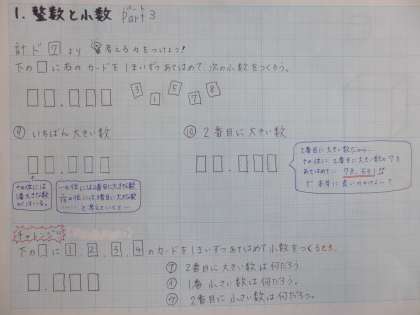 1. 整数と小数 Part 3
計ド 7 より 考える力をつけよう!
下の□に右のカードを1まいずつあてはめて、次の小数をつくろう。
□□.□□□ 3 1 5 7 8
いちばん大きい数
□□.□□□
2番目に大きい数
□□.□□□
2番目に大きい数だから、
十の位に2番目に大きい数の7を
あてはめて…
十の位には
1番大きな数
がはいる。
一の位には2番目に大きな数
1/10の位には3番目に大きい数
……と考えていくと…
チャレンジ
下の□に 1 2 3 4 のカードを1まいずつあてはめて小数をつくるとき、
□.□□□
㋐ 2番目に大きい数は何だろう
㋑ 1番小さい数は何だろう。
㋒ 2番目に小さい数は何だろう。